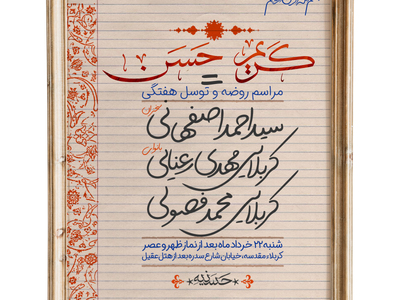 کریم = حسن
مراسم روضه و توسل هفتگی
سخنران
سید احمد اصفهانی
بانوای
کربلایی مهدی رعنایی
کربلایی محمد فصولی
شنبه ۲۲ خرداد ماه بعد از نماز ظهر و عصر
کربلاء مقدسه، خیابان شارع سدره بعد از هتل عقیل
حسینیه